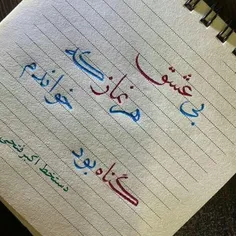 بی عشق
هر نماز که
خواندم
گناه بود
دستخط اکبر فتحی